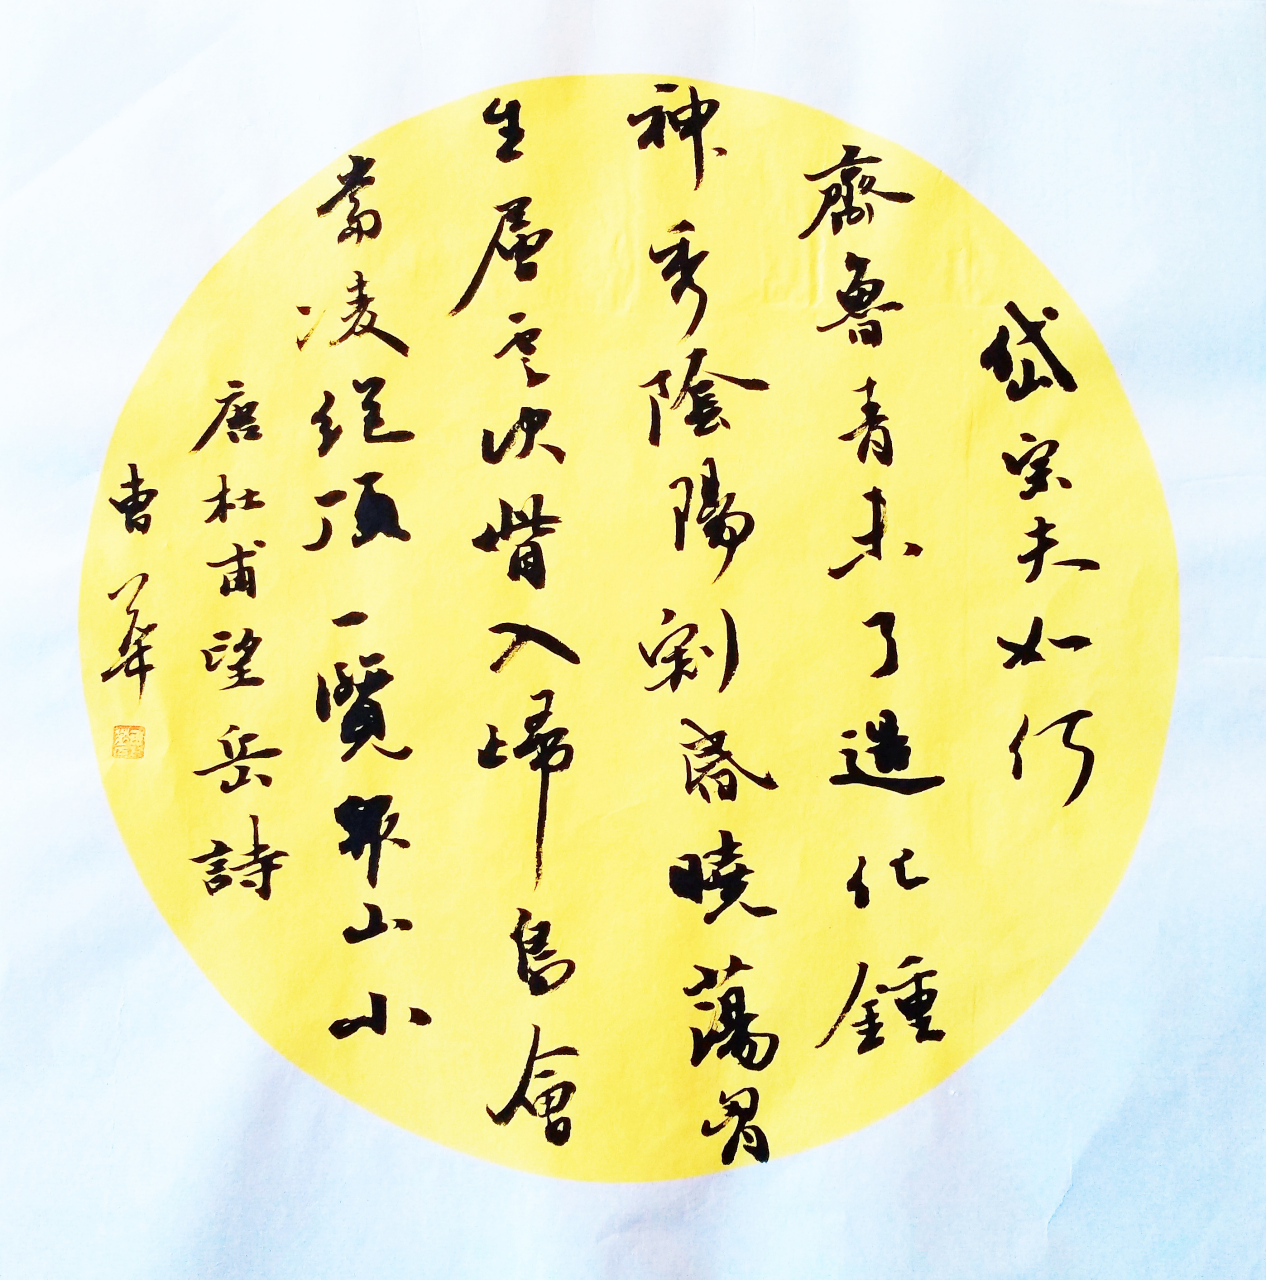 岱宗夫如何
齊魯青未了造化鍾
神秀陰陽割昏曉蕩胷
生層雲決眥入歸鳥會
當凌絕頂一覽眾山小
唐杜甫望岳詩
曹華